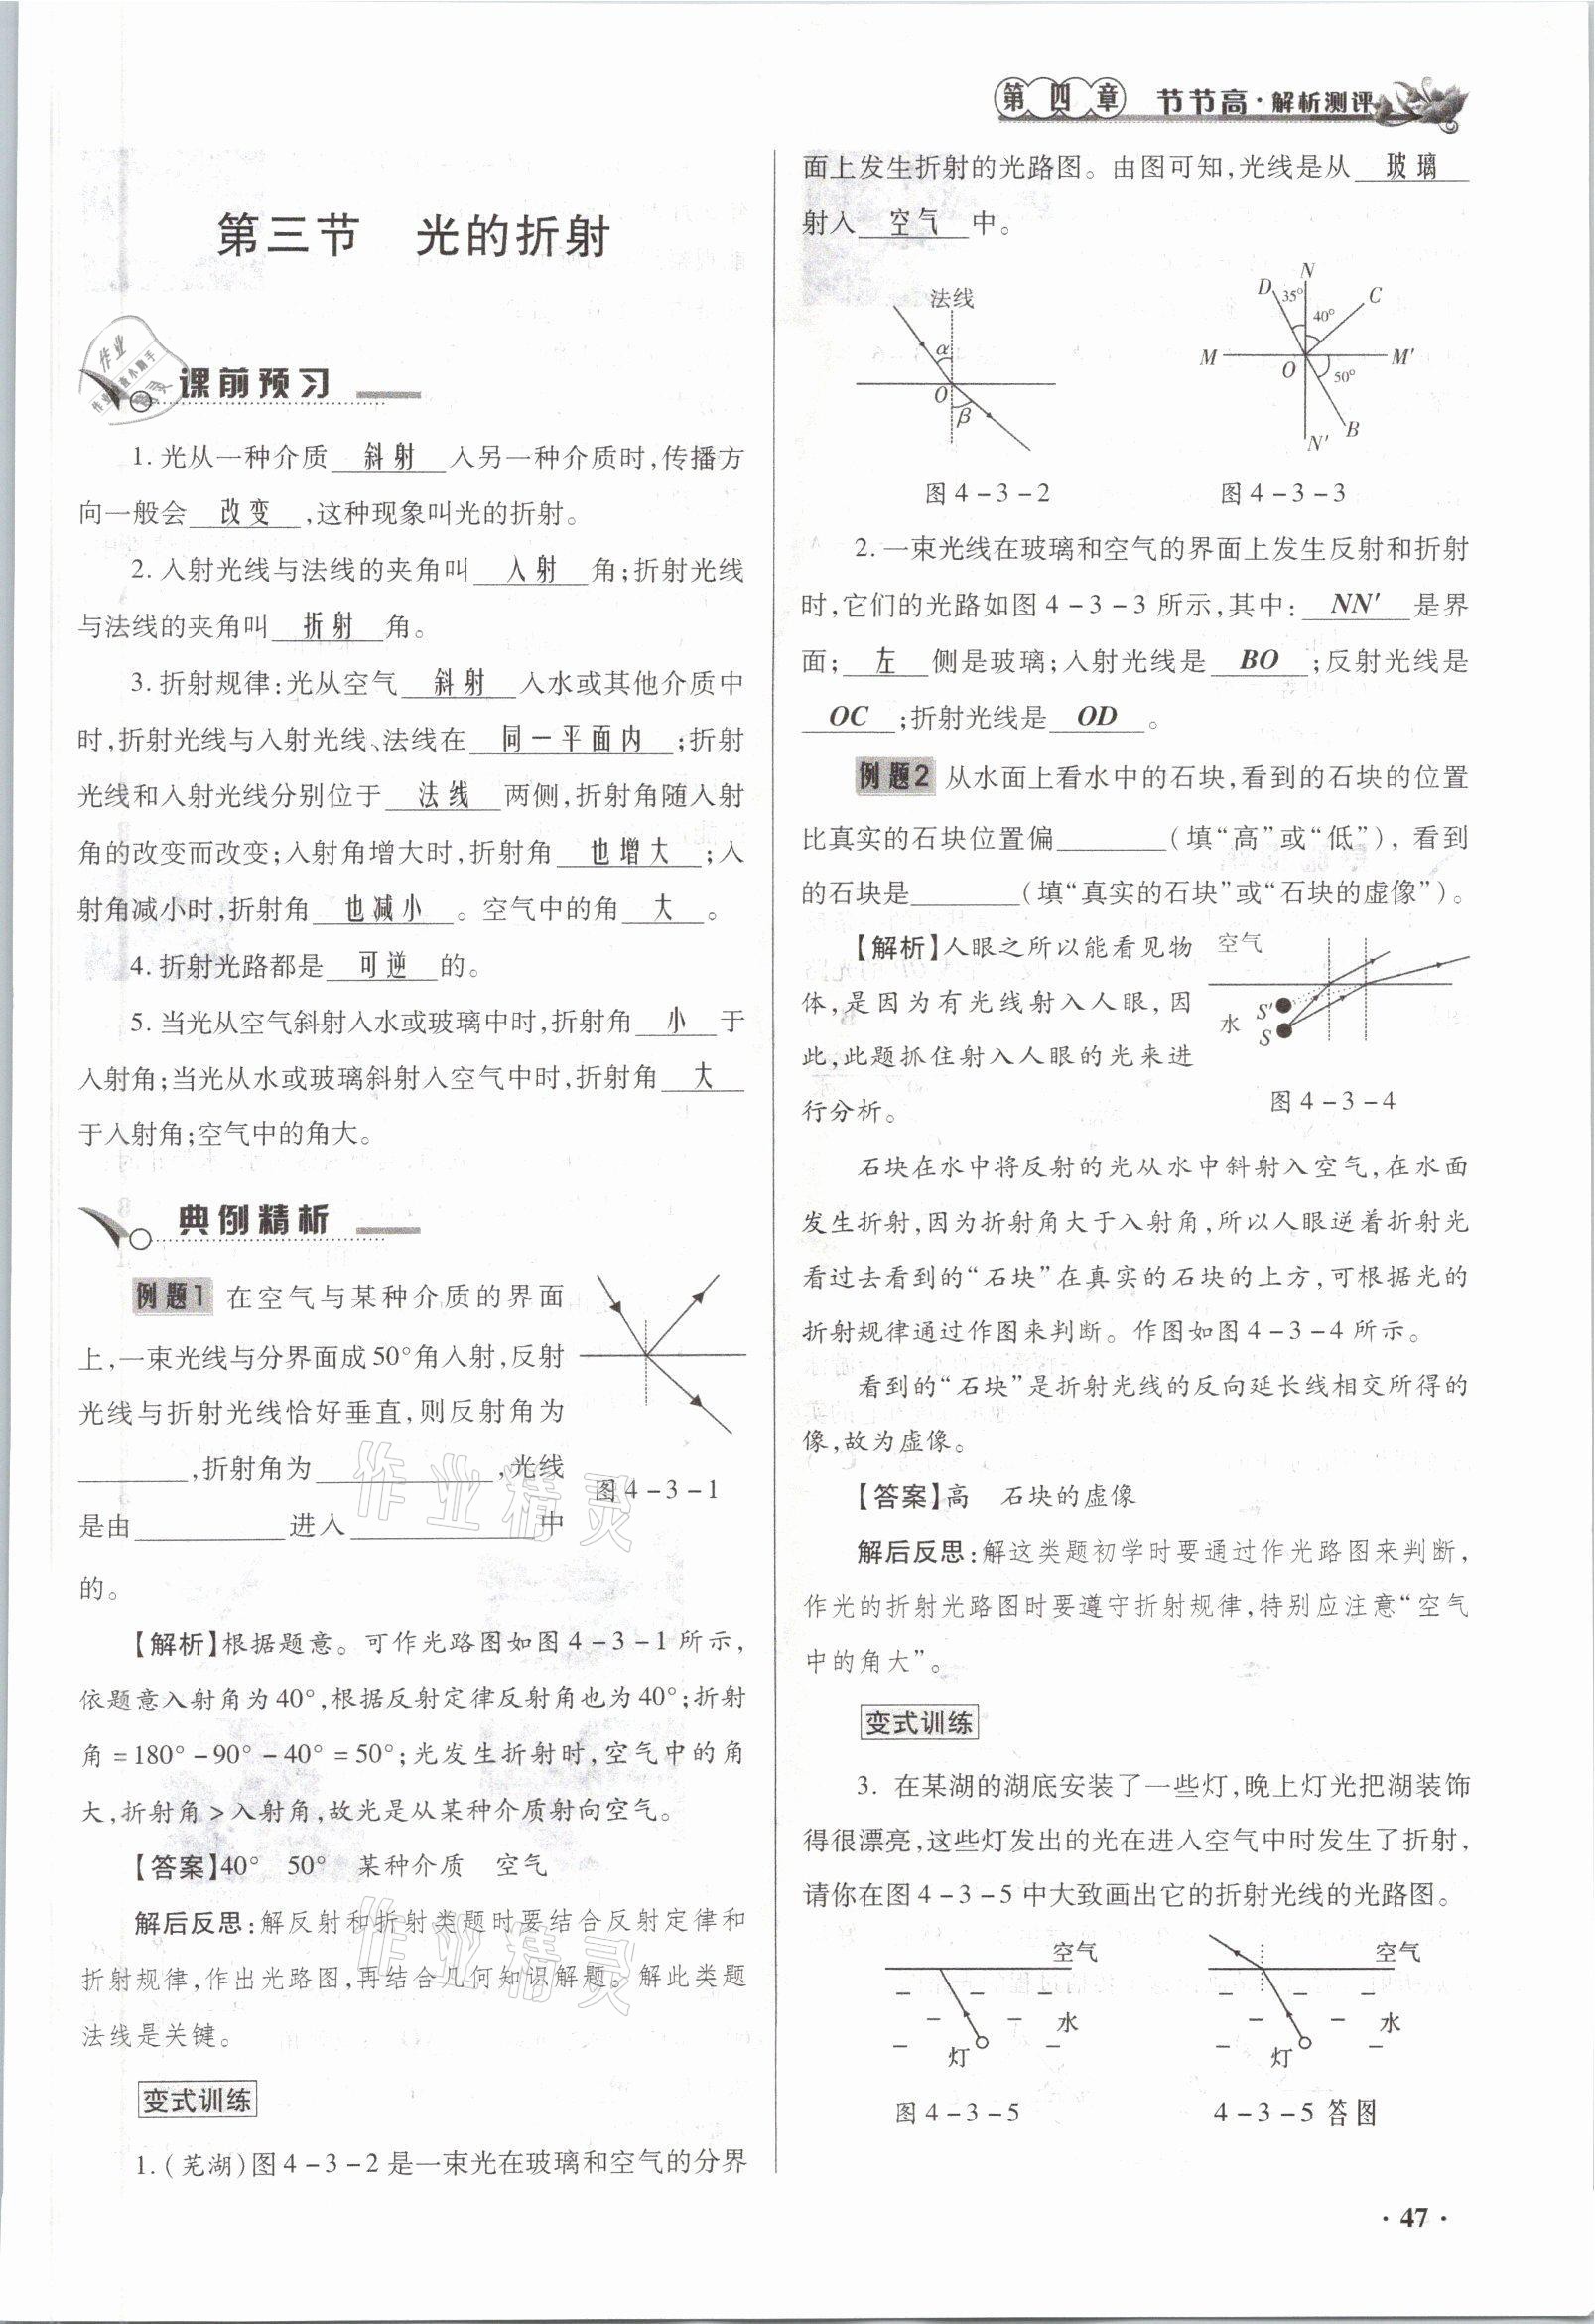 第四章 节节高·解析测评
第三节 光的折射
课前预习
1. 光从一种介质 斜射 入另一种介质时,传播方
向一般会 改变 ,这种现象叫光的折射。
2. 入射光线与法线的夹角叫 入射 角;折射光线
与法线的夹角叫 折射 角。
3. 折射规律:光从空气 斜射 入水或其他介质中
时,折射光线与入射光线、法线在 同一平面内 ;折射
光线和入射光线分别位于 法线 两侧,折射角随入射
角的改变而改变;入射角增大时,折射角 也增大 ;入
射角减小时,折射角 也减小 。空气中的角 大 。
4. 折射光路都是 可逆 的。
5. 当光从空气斜射入水或玻璃中时,折射角 小 于
入射角;当光从水或玻璃斜射入空气中时,折射角 大
于入射角;空气中的角大。
典例精析
例题1 在空气与某种介质的界面
上,一束光线与分界面成50°角入射,反射
光线与折射光线恰好垂直,则反射角为
________,折射角为____________,光线
是由__________进入____________中
的。
图4-3-1
【解析】根据题意。可作光路图如图4-3-1所示,
依题意入射角为40°,根据反射定律反射角也为40°;折射
角=180°-90°-40°=50°;光发生折射时,空气中的角
大,折射角>入射角,故光是从某种介质射向空气。
【答案】40° 50° 某种介质 空气
解后反思:解反射和折射类题时要结合反射定律和
折射规律,作出光路图,再结合几何知识解题。解此类题
法线是关键。
变式训练
1. (芜湖)图4-3-2是一束光在玻璃和空气的分界
面上发生折射的光路图。由图可知,光线是从 玻璃
射入 空气 中。
法线
α
O
β
图4-3-2
N
D
35°
40°
C
M
O
M′
50°
B
N′
图4-3-3
2. 一束光线在玻璃和空气的界面上发生反射和折射
时,它们的光路如图4-3-3所示,其中: NN′ 是界
面; 左 侧是玻璃;入射光线是 BO ;反射光线是
OC ;折射光线是 OD 。
例题2 从水面上看水中的石块,看到的石块的位置
比真实的石块位置偏________(填“高”或“低”),看到
的石块是________(填“真实的石块”或“石块的虚像”)。
【解析】人眼之所以能看见物
体,是因为有光线射入人眼,因
此,此题抓住射入人眼的光来进
行分析。
空气
水
S′
S
图4-3-4
石块在水中将反射的光从水中斜射入空气,在水面
发生折射,因为折射角大于入射角,所以人眼逆着折射光
看过去看到的“石块”在真实的石块的上方,可根据光的
折射规律通过作图来判断。作图如图4-3-4所示。
看到的“石块”是折射光线的反向延长线相交所得的
像,故为虚像。
【答案】高 石块的虚像
解后反思:解这类题初学时要通过作光路图来判断,
作光的折射光路图时要遵守折射规律,特别应注意“空气
中的角大”。
变式训练
3. 在某湖的湖底安装了一些灯,晚上灯光把湖装饰
得很漂亮,这些灯发出的光在进入空气中时发生了折射,
请你在图4-3-5中大致画出它的折射光线的光路图。
空气
水
灯
图4-3-5
空气
水
灯
4-3-5答图
· 47 ·
作业精灵
作业精灵